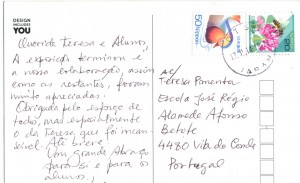 DESIGN
INCLUDES
YOU
Querida Teresa e Alunos,
A exposição terminou e
a nossa colaboração, assim
como as restantes, foram
muito apreciadas.
Obrigada pelo esforço de
todos, mas especialmente
o da Teresa que foi incan
sável.
Até breve,
Um grande Abraço
para si e para os
alunos,
A/C
Teresa Pimenta
Escola José Régio
Alameda Afonso
Betote
4480 Vila do Conde
Portugal
50
50
JAPAN